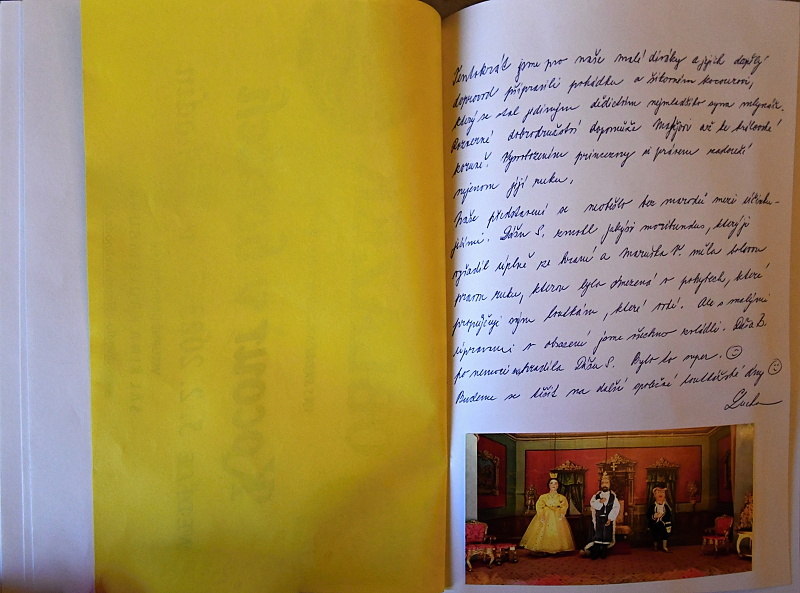 Tentokrát jsme pro naše malé diváky a jejich dospělý
doprovod připravili pohádku o šikovném kocourovi,
který se stal jediným dědictvím nejmladšího syna mlynáře.
Rozverné dobrodružství dopomůže Matějovi až ke královské
koruně! Vysvobozením princezny si právem zaslouží
nejenom její ruku.
Naše představení se neobešlo bez marodů mezi účinku-
jícími. Dášu S. kmotl jakýsi moribundus, který ji
vyřadil úplně ze hraní a Maruška V. měla bolavou
pravou ruku, kterou byla omezená v pohybech, které
propůjčuje svým loutkám, které vodí. Ale s malými
úpravami v obsazení jsme všechno zvládli. Dáša Z.
po nemoci nahradila Dášu S. Bylo to super. ☺
Budeme se těšit na další společné loutkářské dny ☺
Kocour